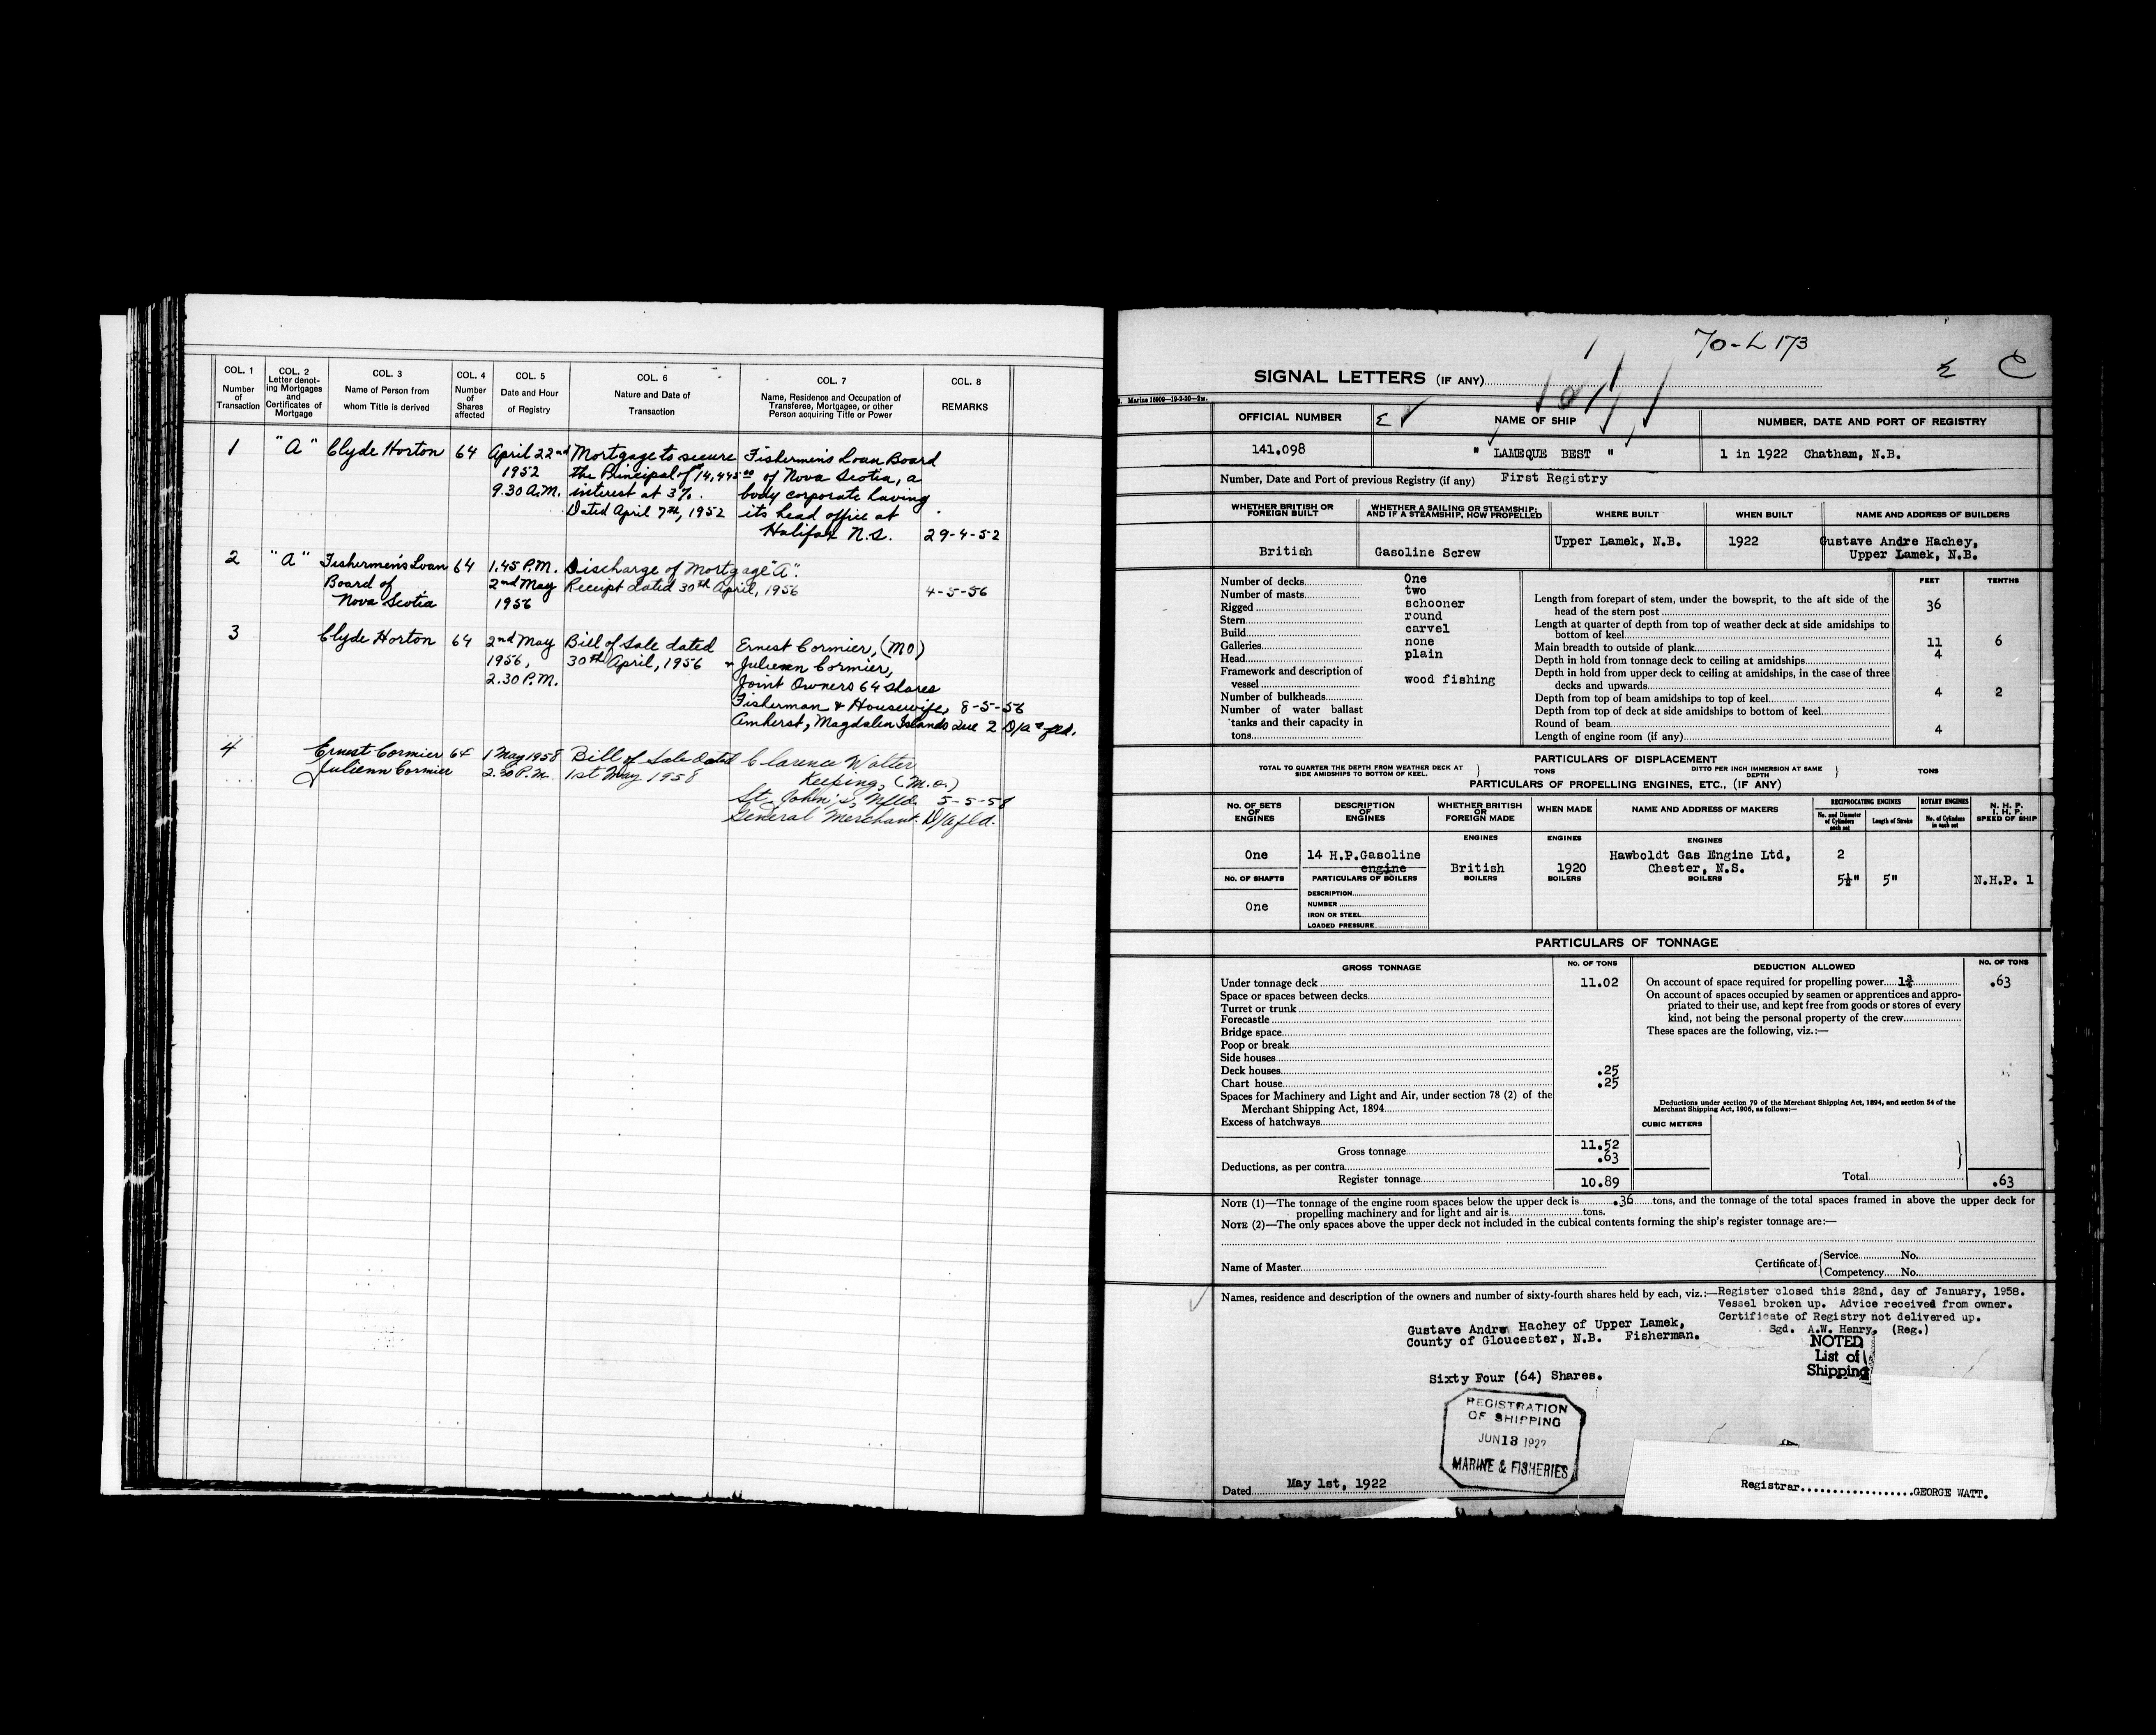 COL. 1 Number of Transaction
COL. 2 Letter denoting Mortgages and Certificates of Mortgage
COL. 3 Name of Person from whom Title is derived
COL. 4 Number of Shares affected
COL. 5 Date and Hour of Registry
COL. 6 Nature and Date of Transaction
COL. 7 Name, Residence and Occupation of Transferee, Mortgagee, or other Person acquiring Title or Power
COL. 8 REMARKS
1 "A" Clyde Horton 64 April 22nd Mortgage to secure Fishermen's Loan Board
1952 the Principal of $14,445.00 of Nova Scotia, a
9.30 A.M. interest at 3%. body corporate having
Dated April 7th, 1952 its head office at
Halifax N.S. 29-4-52
2 "A" Fishermen's Loan 64 1.45 P.M. Discharge of Mortgage "A".
Board of 2nd May Receipt dated 30th April, 1956 4-5-56
Nova Scotia 1956
3 Clyde Horton 64 2nd May Bill of Sale dated Ernest Cormier, (MO)
1956, 30th April, 1956 + Julienn Cormier,
2.30 P.M. Joint Owners 64 shares
Fisherman & Housewife, 8-5-56
Amherst, Magdalen Islands Que 2 D/a's fld.
4 Ernest Cormier 64 1 May 1958 Bill of Sale dated Clarence Walter
Julienn Cormier 2.30 P.M. 1st May 1958 Keeping, (M.O.)
St. John's, Nfld. 5-5-58
General Merchant. D/a fld.
70-L 173
SIGNAL LETTERS (IF ANY)
Σ C
Marine 16909—19-2-20—2M.
OFFICIAL NUMBER Σ NAME OF SHIP NUMBER, DATE AND PORT OF REGISTRY
141.098 " LAMEQUE BEST " 1 in 1922 Chatham, N.B.
Number, Date and Port of previous Registry (if any) First Registry
WHETHER BRITISH OR FOREIGN BUILT
WHETHER A SAILING OR STEAMSHIP; AND IF A STEAMSHIP, HOW PROPELLED
WHERE BUILT
WHEN BUILT
NAME AND ADDRESS OF BUILDERS
British Gasoline Screw Upper Lamek, N.B. 1922 Gustave Andre Hachey,
Upper Lamek, N.B.
FEET TENTHS
Number of decks One
Number of masts two
Rigged schooner
Stern round
Build carvel
Galleries none
Head plain
Framework and description of
vessel wood fishing
Number of bulkheads
Number of water ballast
tanks and their capacity in
tons
Length from forepart of stem, under the bowsprit, to the aft side of the
head of the stern post 36
Length at quarter of depth from top of weather deck at side amidships to
bottom of keel
Main breadth to outside of plank 11 6
Depth in hold from tonnage deck to ceiling at amidships 4
Depth in hold from upper deck to ceiling at amidships, in the case of three
decks and upwards
Depth from top of beam amidships to top of keel 4 2
Depth from top of deck at side amidships to bottom of keel
Round of beam
Length of engine room (if any) 4
PARTICULARS OF DISPLACEMENT
TOTAL TO QUARTER THE DEPTH FROM WEATHER DECK AT SIDE AMIDSHIPS TO BOTTOM OF KEEL. TONS DITTO PER INCH IMMERSION AT SAME DEPTH TONS
PARTICULARS OF PROPELLING ENGINES, ETC., (IF ANY)
No. OF SETS OF ENGINES
DESCRIPTION OF ENGINES
WHETHER BRITISH OR FOREIGN MADE
WHEN MADE
NAME AND ADDRESS OF MAKERS
RECIPROCATING ENGINES
No. and Diameter of Cylinders each set
Length of Stroke
ROTARY ENGINES
No. of Cylinders in each set
N. H. P.
I. H. P.
SPEED OF SHIP
ENGINES ENGINES ENGINES
One 14 H.P.Gasoline engine British 1920 Hawboldt Gas Engine Ltd, 2
Chester, N.S.
BOILERS BOILERS BOILERS
5½" 5" N.H.P. 1
No. OF SHAFTS PARTICULARS OF BOILERS
One DESCRIPTION
NUMBER
IRON OR STEEL
LOADED PRESSURE
PARTICULARS OF TONNAGE
GROSS TONNAGE No. OF TONS DEDUCTION ALLOWED No. OF TONS
Under tonnage deck 11.02
Space or spaces between decks
Turret or trunk
Forecastle
Bridge space
Poop or break
Side houses
Deck houses .25
Chart house .25
Spaces for Machinery and Light and Air, under section 78 (2) of the
Merchant Shipping Act, 1894
Excess of hatchways
Gross tonnage 11.52
Deductions, as per contra .63
Register tonnage 10.89
On account of space required for propelling power 1¾ .63
On account of spaces occupied by seamen or apprentices and appro-
priated to their use, and kept free from goods or stores of every
kind, not being the personal property of the crew
These spaces are the following, viz.:—
Deductions under section 79 of the Merchant Shipping Act, 1894, and section 54 of the
Merchant Shipping Act, 1906, as follows:—
CUBIC METERS
Total .63
NOTE (1)—The tonnage of the engine room spaces below the upper deck is .36 tons, and the tonnage of the total spaces framed in above the upper deck for
propelling machinery and for light and air is tons.
NOTE (2)—The only spaces above the upper deck not included in the cubical contents forming the ship's register tonnage are:—
Name of Master Certificate of
Service No.
Competency No.
Names, residence and description of the owners and number of sixty-fourth shares held by each, viz.:—Register closed this 22nd, day of January, 1958.
Vessel broken up. Advice received from owner.
Certificate of Registry not delivered up.
Sgd. A.W. Henry, (Reg.)
Gustave Andre Hachey of Upper Lamek,
County of Gloucester, N.B. Fisherman.
NOTED
List of
Shipping
Sixty Four (64) Shares.
REGISTRATION
OF SHIPPING
JUN 13 1922
MARINE & FISHERIES
Dated May 1st, 1922
Registrar
Registrar GEORGE WATT.